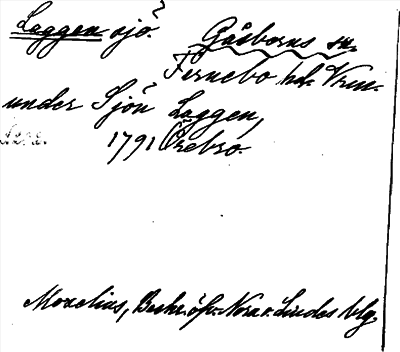 Laggen sjö.
Gåsborns sn.
Fernebo hd. Vrml.
under Sjön Laggen,
1791 Örebro.
Moraelius, Beskr. öfv. Nora o. Lindes blg.